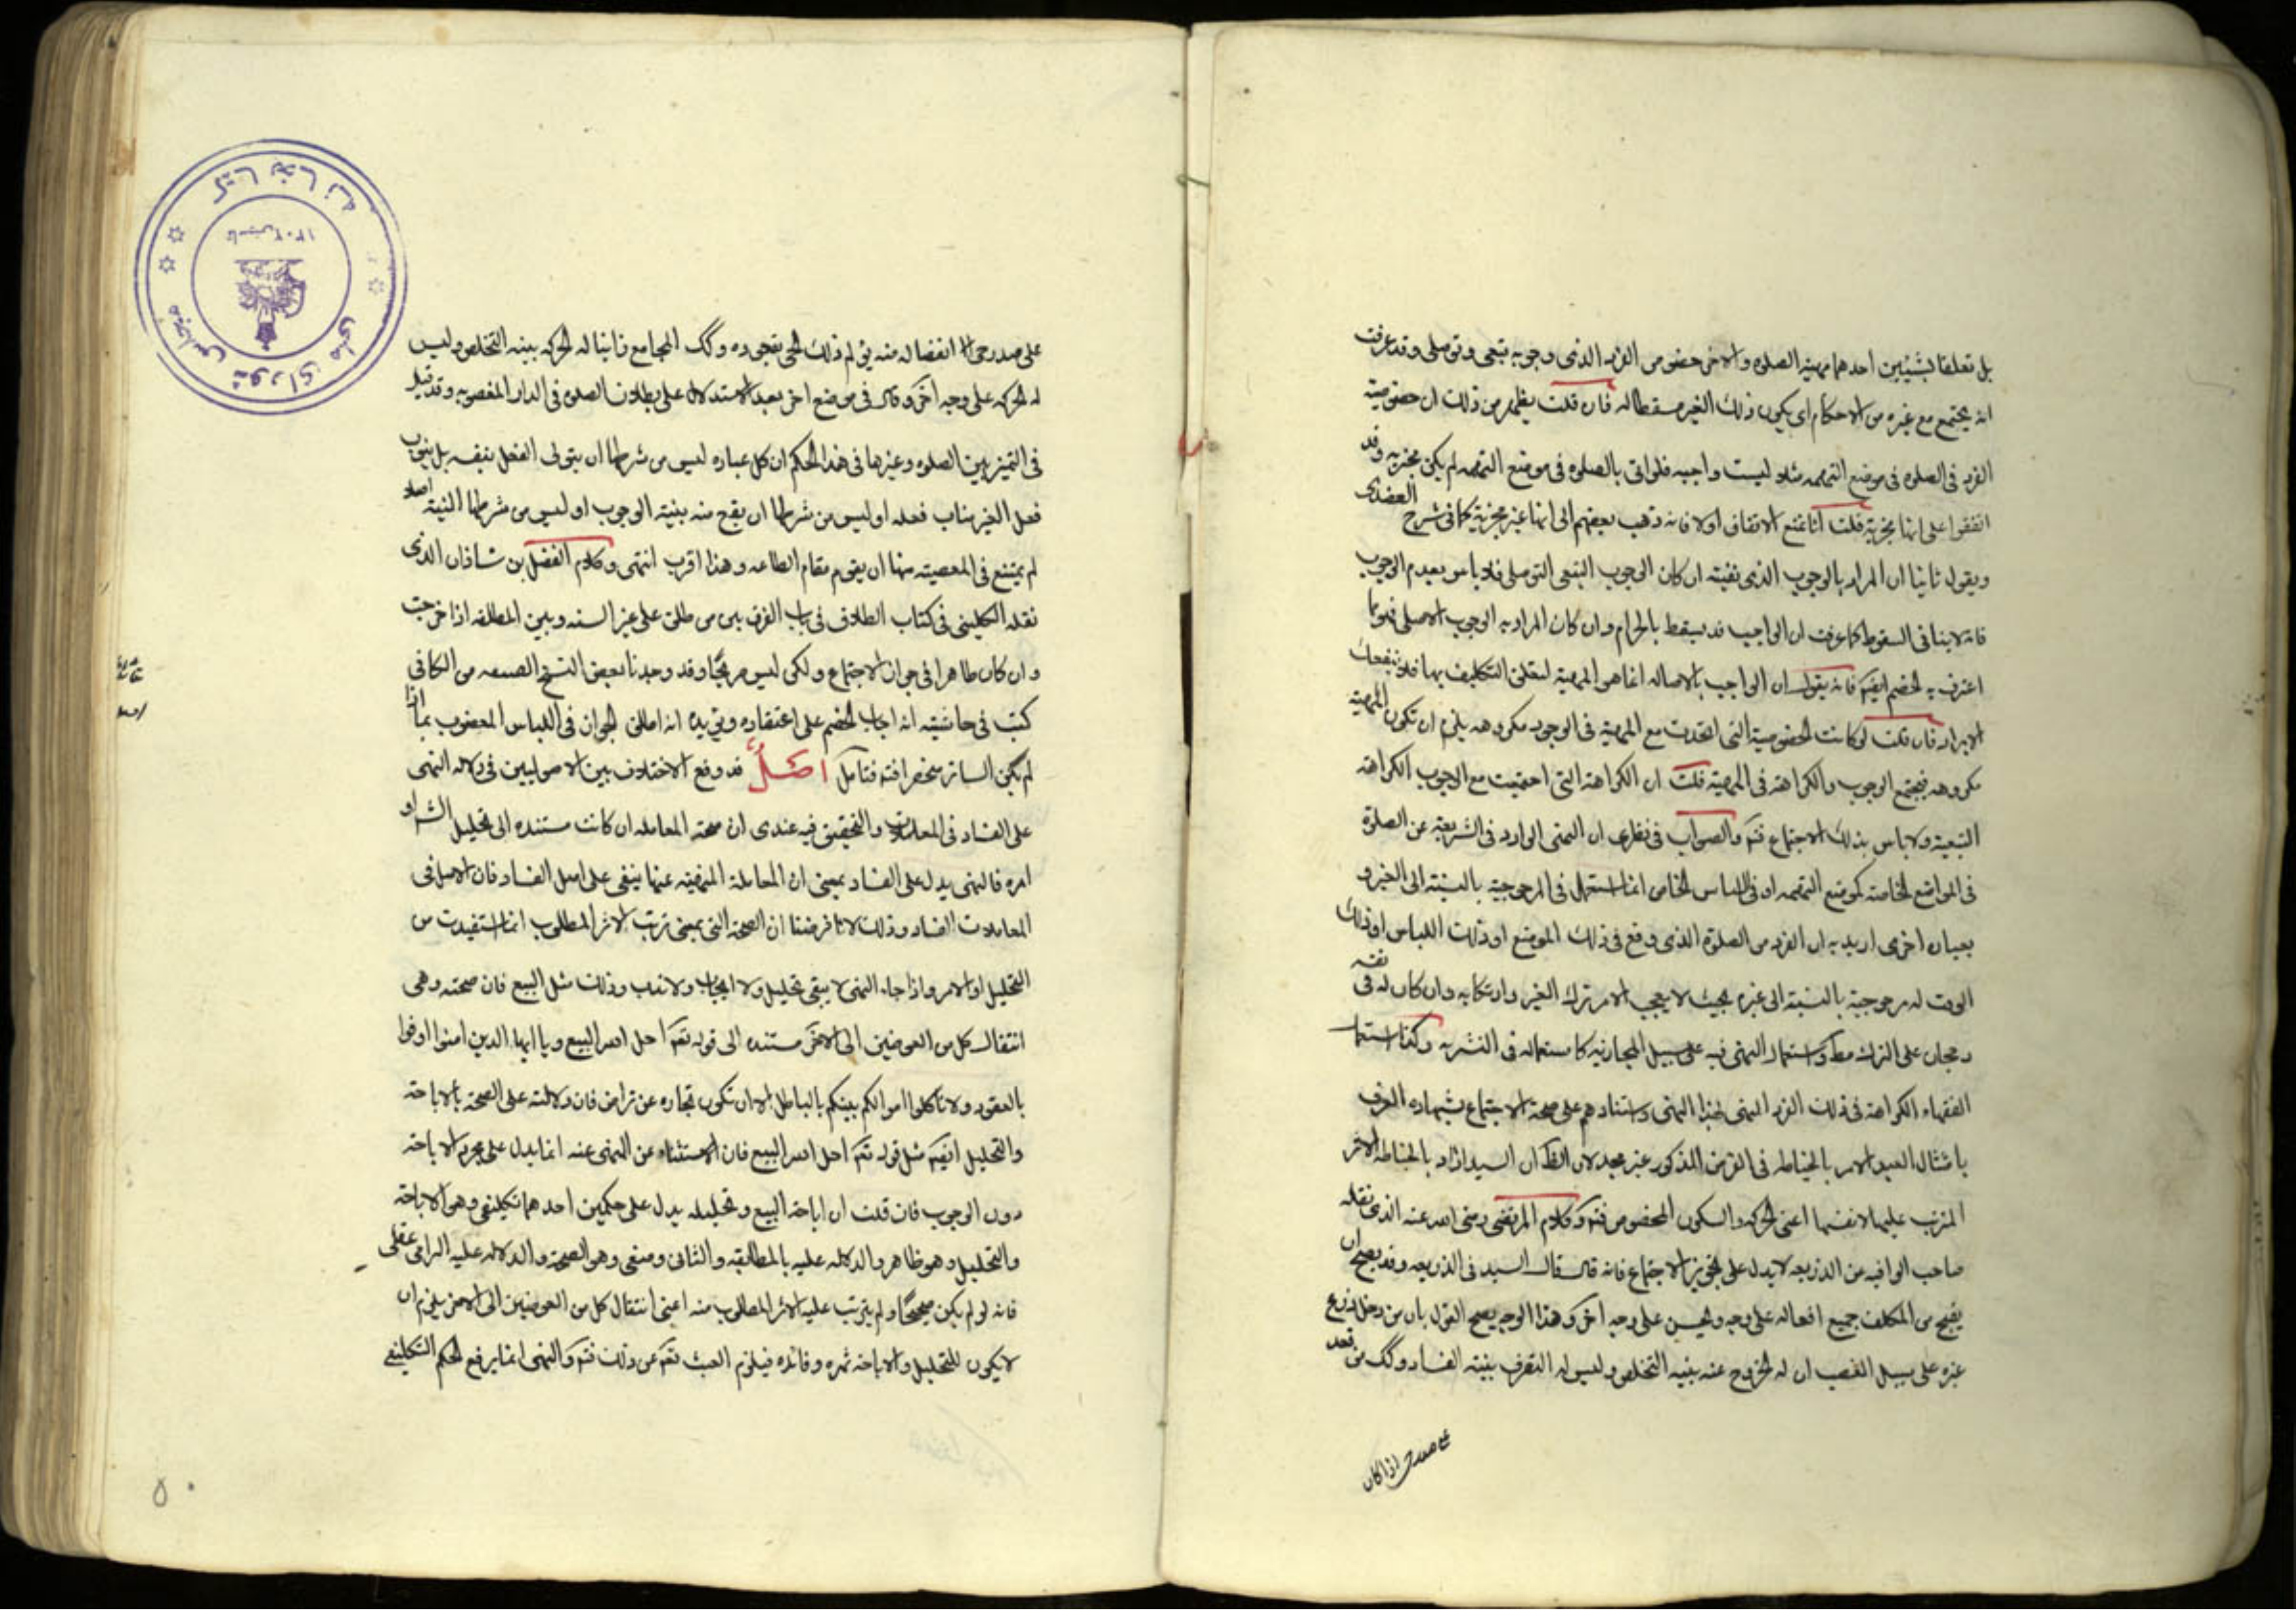 بل تعلقا بشيئين احدهما مهية الصلوه والاخر خصوص الفرد الذى وجوبه تبعى وتوصلى وقد عرفت
انه يجتمع مع غيره من الاحكام اى يكون ذلك الغير مسقطا له فان قلت يظهر من ذلك ان خصوصية
الفرد فى الصلوه فى موضع التهمه مثلا ليست واجبه فلو اتى بالصلوه فى موضع التهمه لم يكن مجزيه وقد
اتفقوا على انها مجزية قلت انا نمنع الاتفاق اولا فانه ذهب بعضهم الى انها غير مجزية كما فى شرح العضدى
ويقول ثانيا ان المراد بالوجوب الذى نفيته ان كان الوجوب التبعى التوصلى فلا باس بعدم الوجوب
فانه لا ينافى السقوط كما عرفت ان الواجب قد يسقط بالحرام وان كان المراد به الوجوب الاصلى فهو مما
اعترف به الخصم ايضا فانه يقول ان الواجب بالاصاله انما هو المهية لتعلق التكليف بها فلا ينفعك
الايراد فان قلت لو كانت الخصوصية التى اتحدت مع المهية فى الوجود مكروهه يلزم ان تكون المهية
مكروهه فيجتمع الوجوب والكراهة فى المهية قلت ان الكراهة التى اجتمعت مع الوجوب الكراهة
التبعية ولا باس بذلك الاجتماع فتم والصواب فى نظرى ان النهى الوارد فى الشريعة عن الصلوة
فى المواضع الخاصة كموضع التهمه او فى اللباس الخاص انما استعمل فى المرجوحية بالنسبة الى الغير و
بعباره اخرى اريد به ان الفرد من الصلوة الذى وقع فى ذلك الموضع او ذلك اللباس او ذلك
الوقت له مرجوحية بالنسبة الى غيره بحيث لا يعجب الامر ترك الغير وارتكابه وان كان له فى نفسه
رجحان على الترك مط واستعمال النهى فيه على سبيل المجازية كاستعماله فى التنزيه وكذا استعما
الفقهاء الكراهة فى ذلك الفرد المنهى لهذا النهى واستنادهم على صحة الاجتماع بشهادة العرف
بامتثال العبد الامر بالخياطه فى الفرض المذكور غير مجد لان الظ ان السيد اراد بالخياطه الاثر
المترتب عليها لا نفسها اعنى الحركه والسكون المخصوص فتم وكلام المرتضى رضى الله عنه الذى نقله
صاحب الوافيه عن الذريعه لا يدل على تجويز الاجتماع فانه قال قال السيد فى الذريعه وقد يصح ان
يقبح من المكلف جميع افعاله على وجه ويحسن على وجه اخر وهذا الوجه يصح القول بان من دخل زرع
غيره على سبيل الغصب ان له الخروج عنه بنيه التخلص وليس له التصرف بنيته الفساد وكك من قعد
على صدر حى اذا كان
على صدر حى انفصاله منه يؤلم ذلك الحى كقعوده وكك المجامع زانيا له الحركه بنيه التخلص وليس
له الحركه على وجه اخر وقال فى موضع اخر بعد الاستدلال على بطلان الصلوه فى الدار المغصوبه وقد قيل
فى التميز بين الصلوه وغيرها فى هذا الحكم ان كل عباده ليس من شرطها ان يتولى الفعل بنفسه بل ينوب
فعل الغير مناب فعله او ليس من شرطها ان يقع منه بنيته الوجوب او ليس من شرطها النية اصلا
لم يمتنع فى المعصيته منها ان يقوم مقام الطاعه وهذا اقرب انتهى وكلام الفضل بن شاذان الذى
نقله الكلينى فى كتاب الطلاق فى باب الفرق بين من طلق على غير السنه وبين المطلقه اذا خرجت
وان كان ظاهرا فى جواز الاجتماع ولكن ليس صريحا وقد وجدنا بعض النسخ من الكافى
كتب فى حاشيته انه اجاب الخصم على اعتقاده ويؤيده انه اطلق الجواز فى اللباس المغصوب بما اذا
لم يكن الساتر منحصرا فيه فتامل اصل قد وقع الاختلاف بين الاصوليين فى دلاله النهى
على الفساد فى المعاملات والتحقيق فيه عندى ان صحة المعامله ان كانت مستنده الى تحليل الش او
امره فالنهى يدل على الفساد بمعنى ان المعاملة المنهية عنها يبقى على اصل الفساد فان الاصل فى
المعاملات الفساد وذلك لانا فرضنا ان الصحة التى بمعنى ترتب الاثر المطلوب انما استفيدت من
التحليل او الامر واذا جاء النهى لا يبقى تحليل ولا ايجاب ولا ندب وذلك مثل البيع فان صحته وهى
انتقال كل من العوضين الى الاخر مستنده الى قوله تعم احل الله البيع ويا ايها الذين امنوا اوفوا
بالعقود ولا تاكلوا اموالكم بينكم بالباطل الا ان تكون تجاره عن تراض فان دلالته على الصحة بالاباحة
والتحليل ايضا مثل قوله تعم احل الله البيع فان الاستثناء عن المنهى عنه انما يدل على مجرد الاباحة
دون الوجوب فان قلت ان اباحة البيع وتحليله يدل على حكمين احدهما تكليفى وهو الاباحة
والتحليل وهو ظاهر والدلاله عليه بالمطابقه والثانى وضعى وهو الصحة والدلاله عليه التزامى عقلى
فانه لو لم يكن صحيحا ولم يترتب عليه الاثر المطلوب منه اعنى انتقال كل من العوضين الى الاخر يلزم ان
لا يكون للتحليل والاباحة ثمره وفائده فيلزم العبث تعم عن ذلك فتم والنهى انما يرفع الحكم التكليفى
كتابخانه مجلس شوراى ملى
تاسيس ١٣٠٢
٥٠